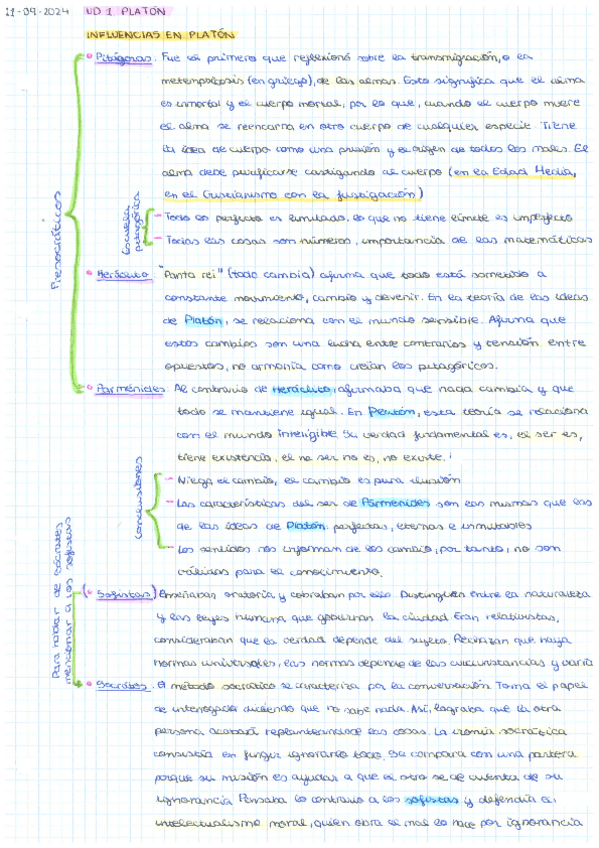 11-09-2024 UD 1 PLATÓN
INFLUENCIAS EN PLATÓN
Presocráticos
• Pitágoras. Fue el primero que reflexionó sobre la transmigración, o la
metempsicosis (en griego), de las almas. Esto significa que el alma
es inmortal y el cuerpo mortal, por lo que, cuando el cuerpo muere
el alma se reencarna en otro cuerpo de cualquier especie. Tiene
la idea de cuerpo como una prisión y el origen de todos los males. El
alma debe purificarse castigando al cuerpo (en la Edad Media,
en el Cristianismo con la fustigación)
Escuela pitagórica
- Todo lo perfecto es limitado, lo que no tiene límite es imperfecto
- Todas las cosas son números, importancia de las matemáticas
• Heráclito "Panta rei" (todo cambia) afirma que todo está sometido a
constante movimiento, cambio y devenir. En la teoría de las ideas
de Platón, se relaciona con el mundo sensible. Afirma que
estos cambios son una lucha entre contrarios y tensión entre
opuestos, no armonía como creían los pitagóricos.
• Parménides Al contrario de Heráclito, afirmaba que nada cambia y que
todo se mantiene igual. En Platón, esta teoría se relaciona
con el mundo inteligible Su verdad fundamental es, el ser es,
tiene existencia, el no ser no es, no existe.
Conclusiones
- Niega el cambio, el cambio es pura ilusión
- Las características del ser de Parménides son las mismas que las
de las ideas de Platón: perfectas, eternas e inmutables
- Los sentidos nos informan de los cambio, por tanto, no son
válidos para el conocimiento.
Para hablar de Sócrates
mencionar a los sofistas
(• Sofistas) Enseñaban oratoria y cobraban por ello Distinguen entre la naturaleza
y las leyes humana que gobiernan la ciudad. Eran relativistas,
consideraban que la verdad depende del sujeto. Rechazan que haya
normas universales, las normas depende de las circunstancias y varía
• Sócrates. El método socrático se caracteriza por la conversación Toma el papel
de interrogador diciendo que no sabe nada. Así, lograba que la otra
persona acabará replanteándose las cosas. La ironía socrática
consistía en fingir ignorarlo todo. Se compara con una partera
porque su misión es ayudar a que el otro se de cuenta de su
ignorancia Pensaba lo contrario a los sofistas y defendía el
intelectualismo moral, quien obra el mal lo hace por ignorancia